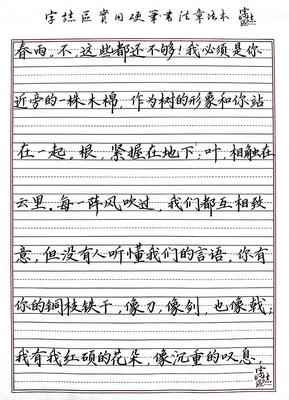 區實用硬筆書法章法本
春雨。不,这些都还不够!我必须是你
近旁的一株木棉,作为树的形象和你站
在一起。根,紧握在地下;叶,相触在
云里。每一阵风吹过,我们都互相致
意,但没有人听懂我们的言语。你有
你的铜枝铁干,像刀,像剑,也像戟;
我有我红硕的花朵,像沉重的叹息,